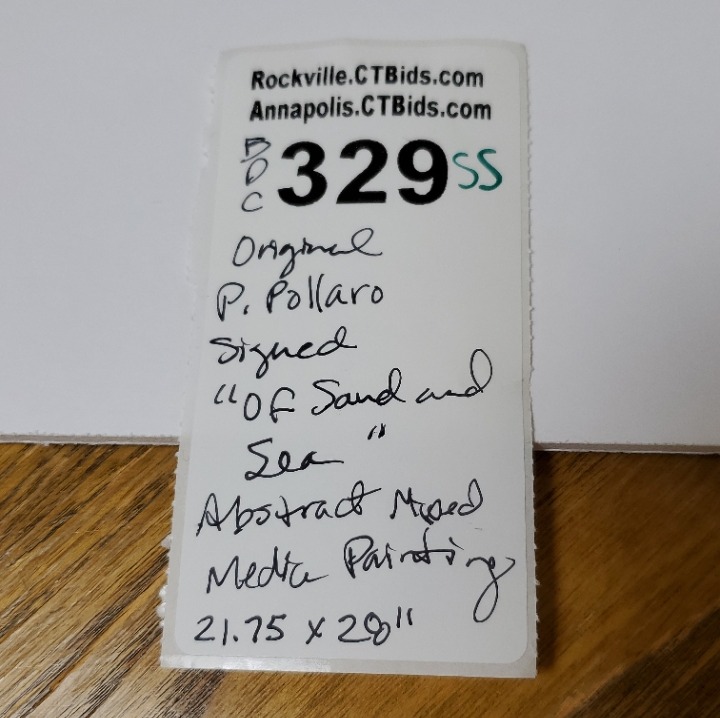 Rockville.CTBids.com
Annapolis.CTBids.com
B
D
C
329 SS
Original
P. Pollaro
Signed
"Of Sand and
Sea"
Abstract Mixed
Media Painting
21.75 x 28"